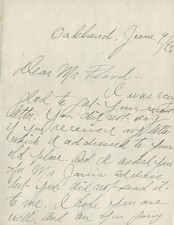 Oakland, June 9/
Dear Mr.
I was very
glad to get your
letter. You did not say
if you received my letter
which I addressed to your
old place and I asked you
for Mr. address
but you did not send it
to me. I hope you are
well and are